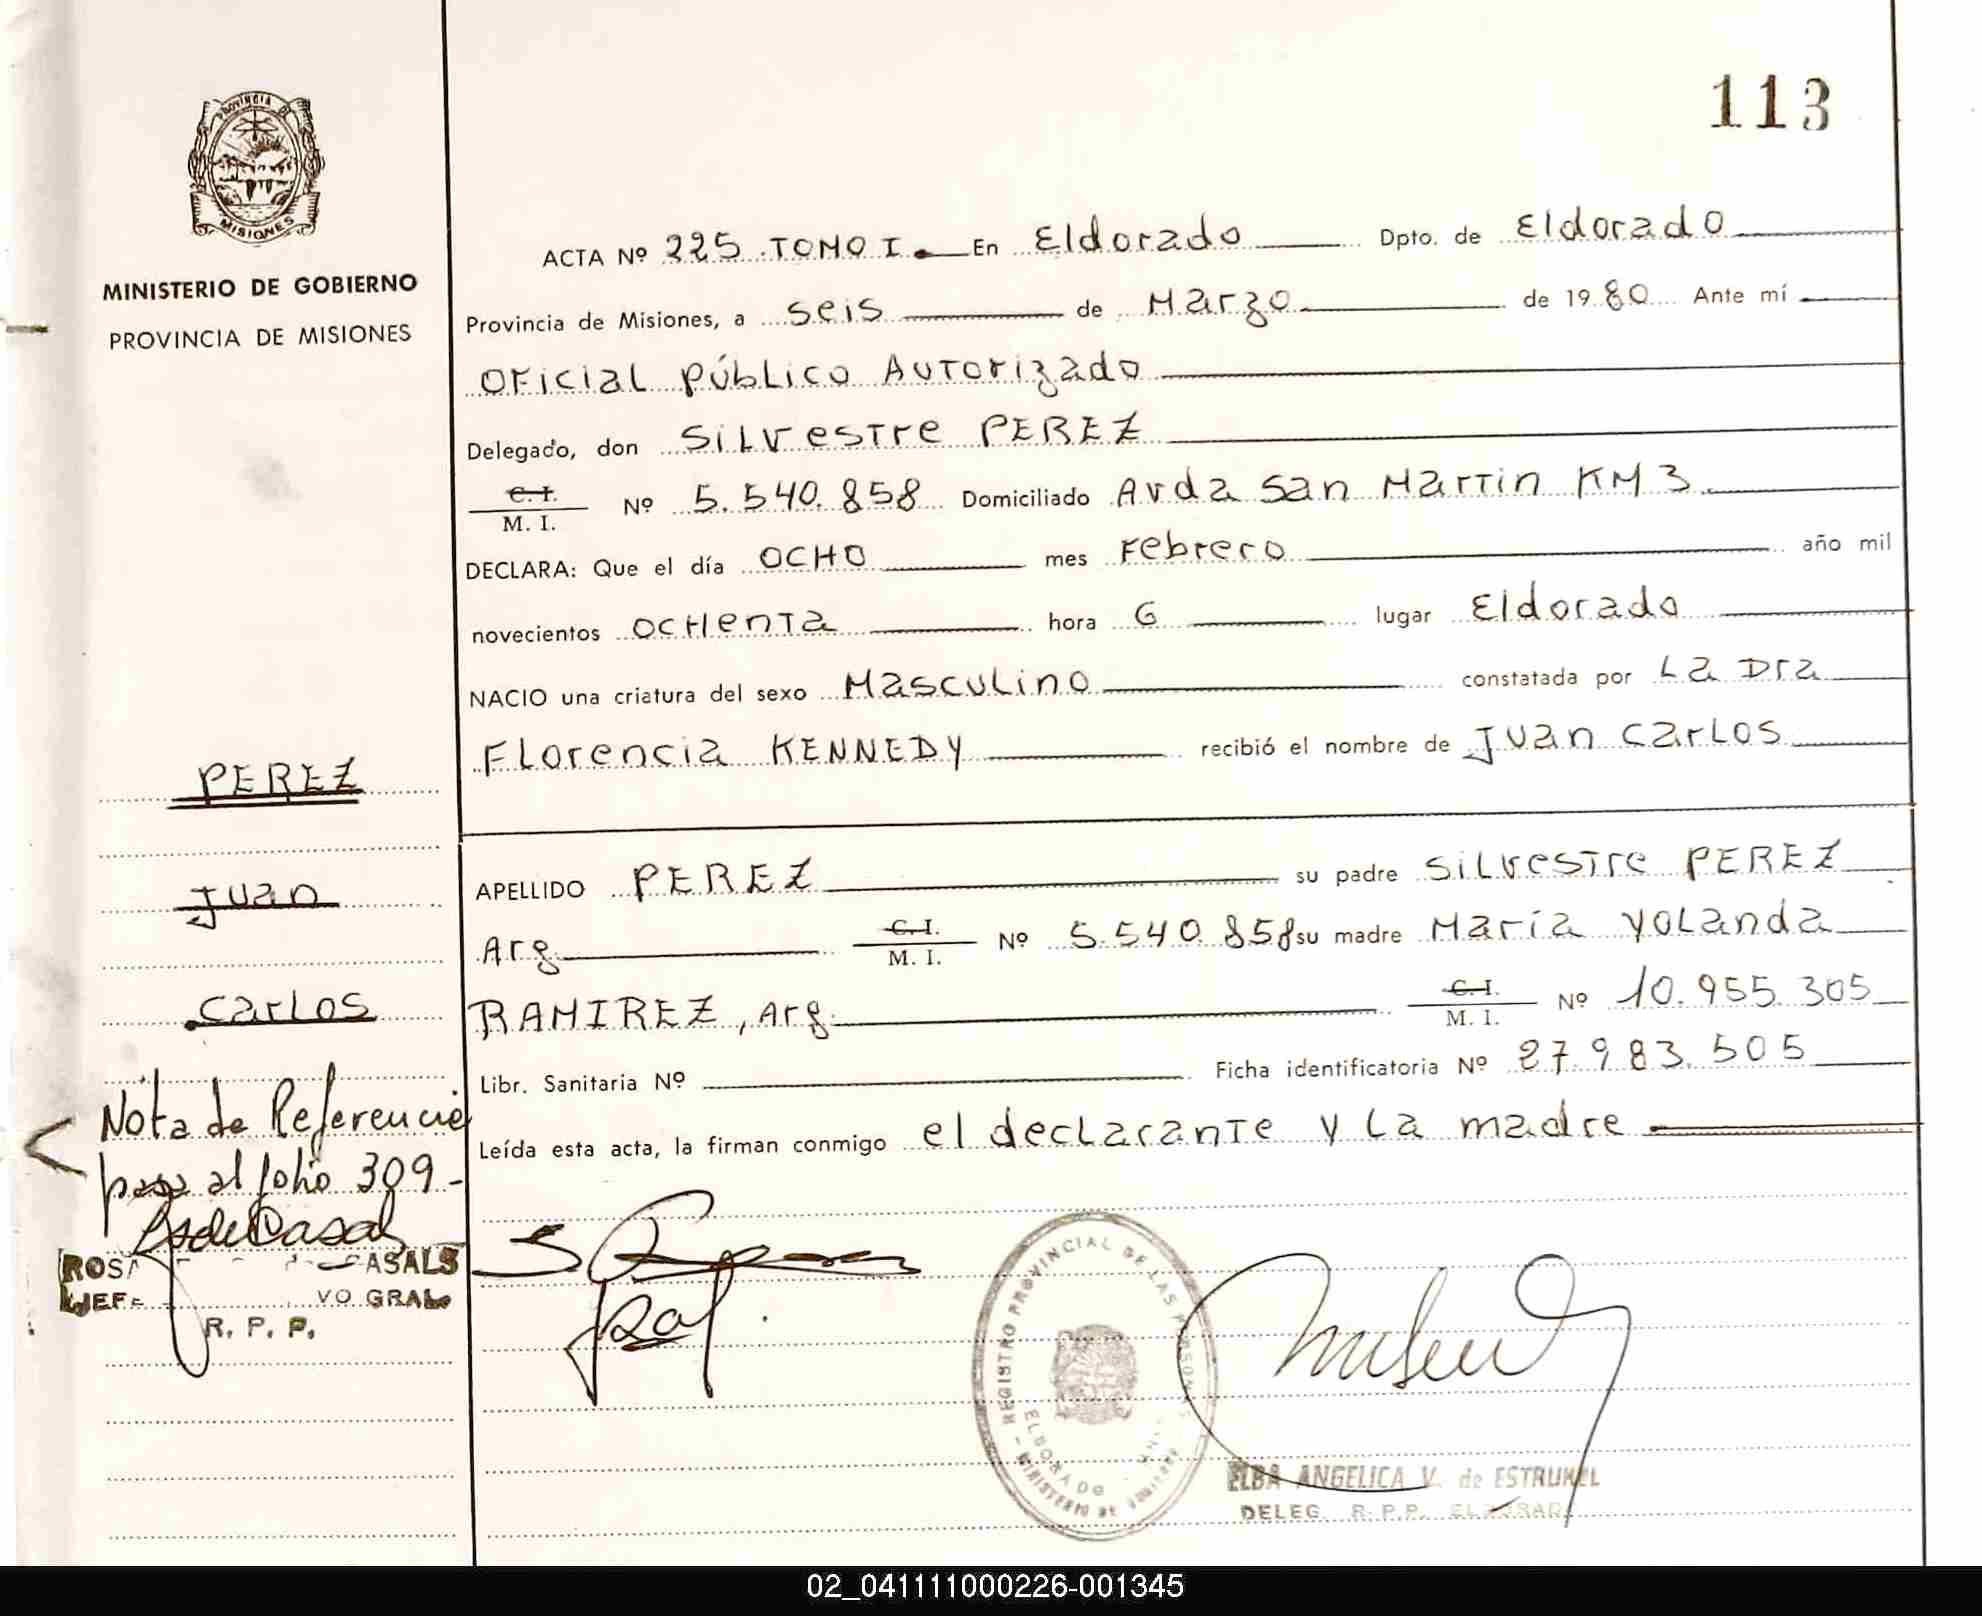 113
PROVINCIA DE
MISIONES
MINISTERIO DE GOBIERNO
PROVINCIA DE MISIONES
ACTA Nº 225 TOMO I. En Eldorado Dpto. de Eldorado
Provincia de Misiones, a seis de Marzo de 1980 Ante mí
Oficial Público Autorizado
Delegado, don Silvestre PEREZ
C. I.
M. I. Nº 5.540.858 Domiciliado Avda San Martin KM 3.
DECLARA: Que el día OCHO mes Febrero año mil
novecientos OCHENTA hora 6 lugar Eldorado
NACIO una criatura del sexo Masculino constatada por La Dra
Florencia KENNEDY recibió el nombre de Juan Carlos
PEREZ
Juan
Carlos
APELLIDO PEREZ su padre Silvestre PEREZ
Arg. C. I. M. I. Nº 5.540.858 su madre María Yolanda
RAMIREZ, Arg. C. I. M. I. Nº 10.955.305
Libr. Sanitaria Nº Ficha identificatoria Nº 27.983.505
Leída esta acta, la firman conmigo el declarante y la madre
Nota de Referencia
pasa al folio 309-
ROSA CASALS
JEFE VO GRAL
R. P. P.
REGISTRO PROVINCIAL DE LAS PERSONAS
ELDORADO
MINISTERIO DE GOBIERNO
ELBA ANGELICA V. de
DELEG. R. P. P. ELDORADO
02_041111000226-001345